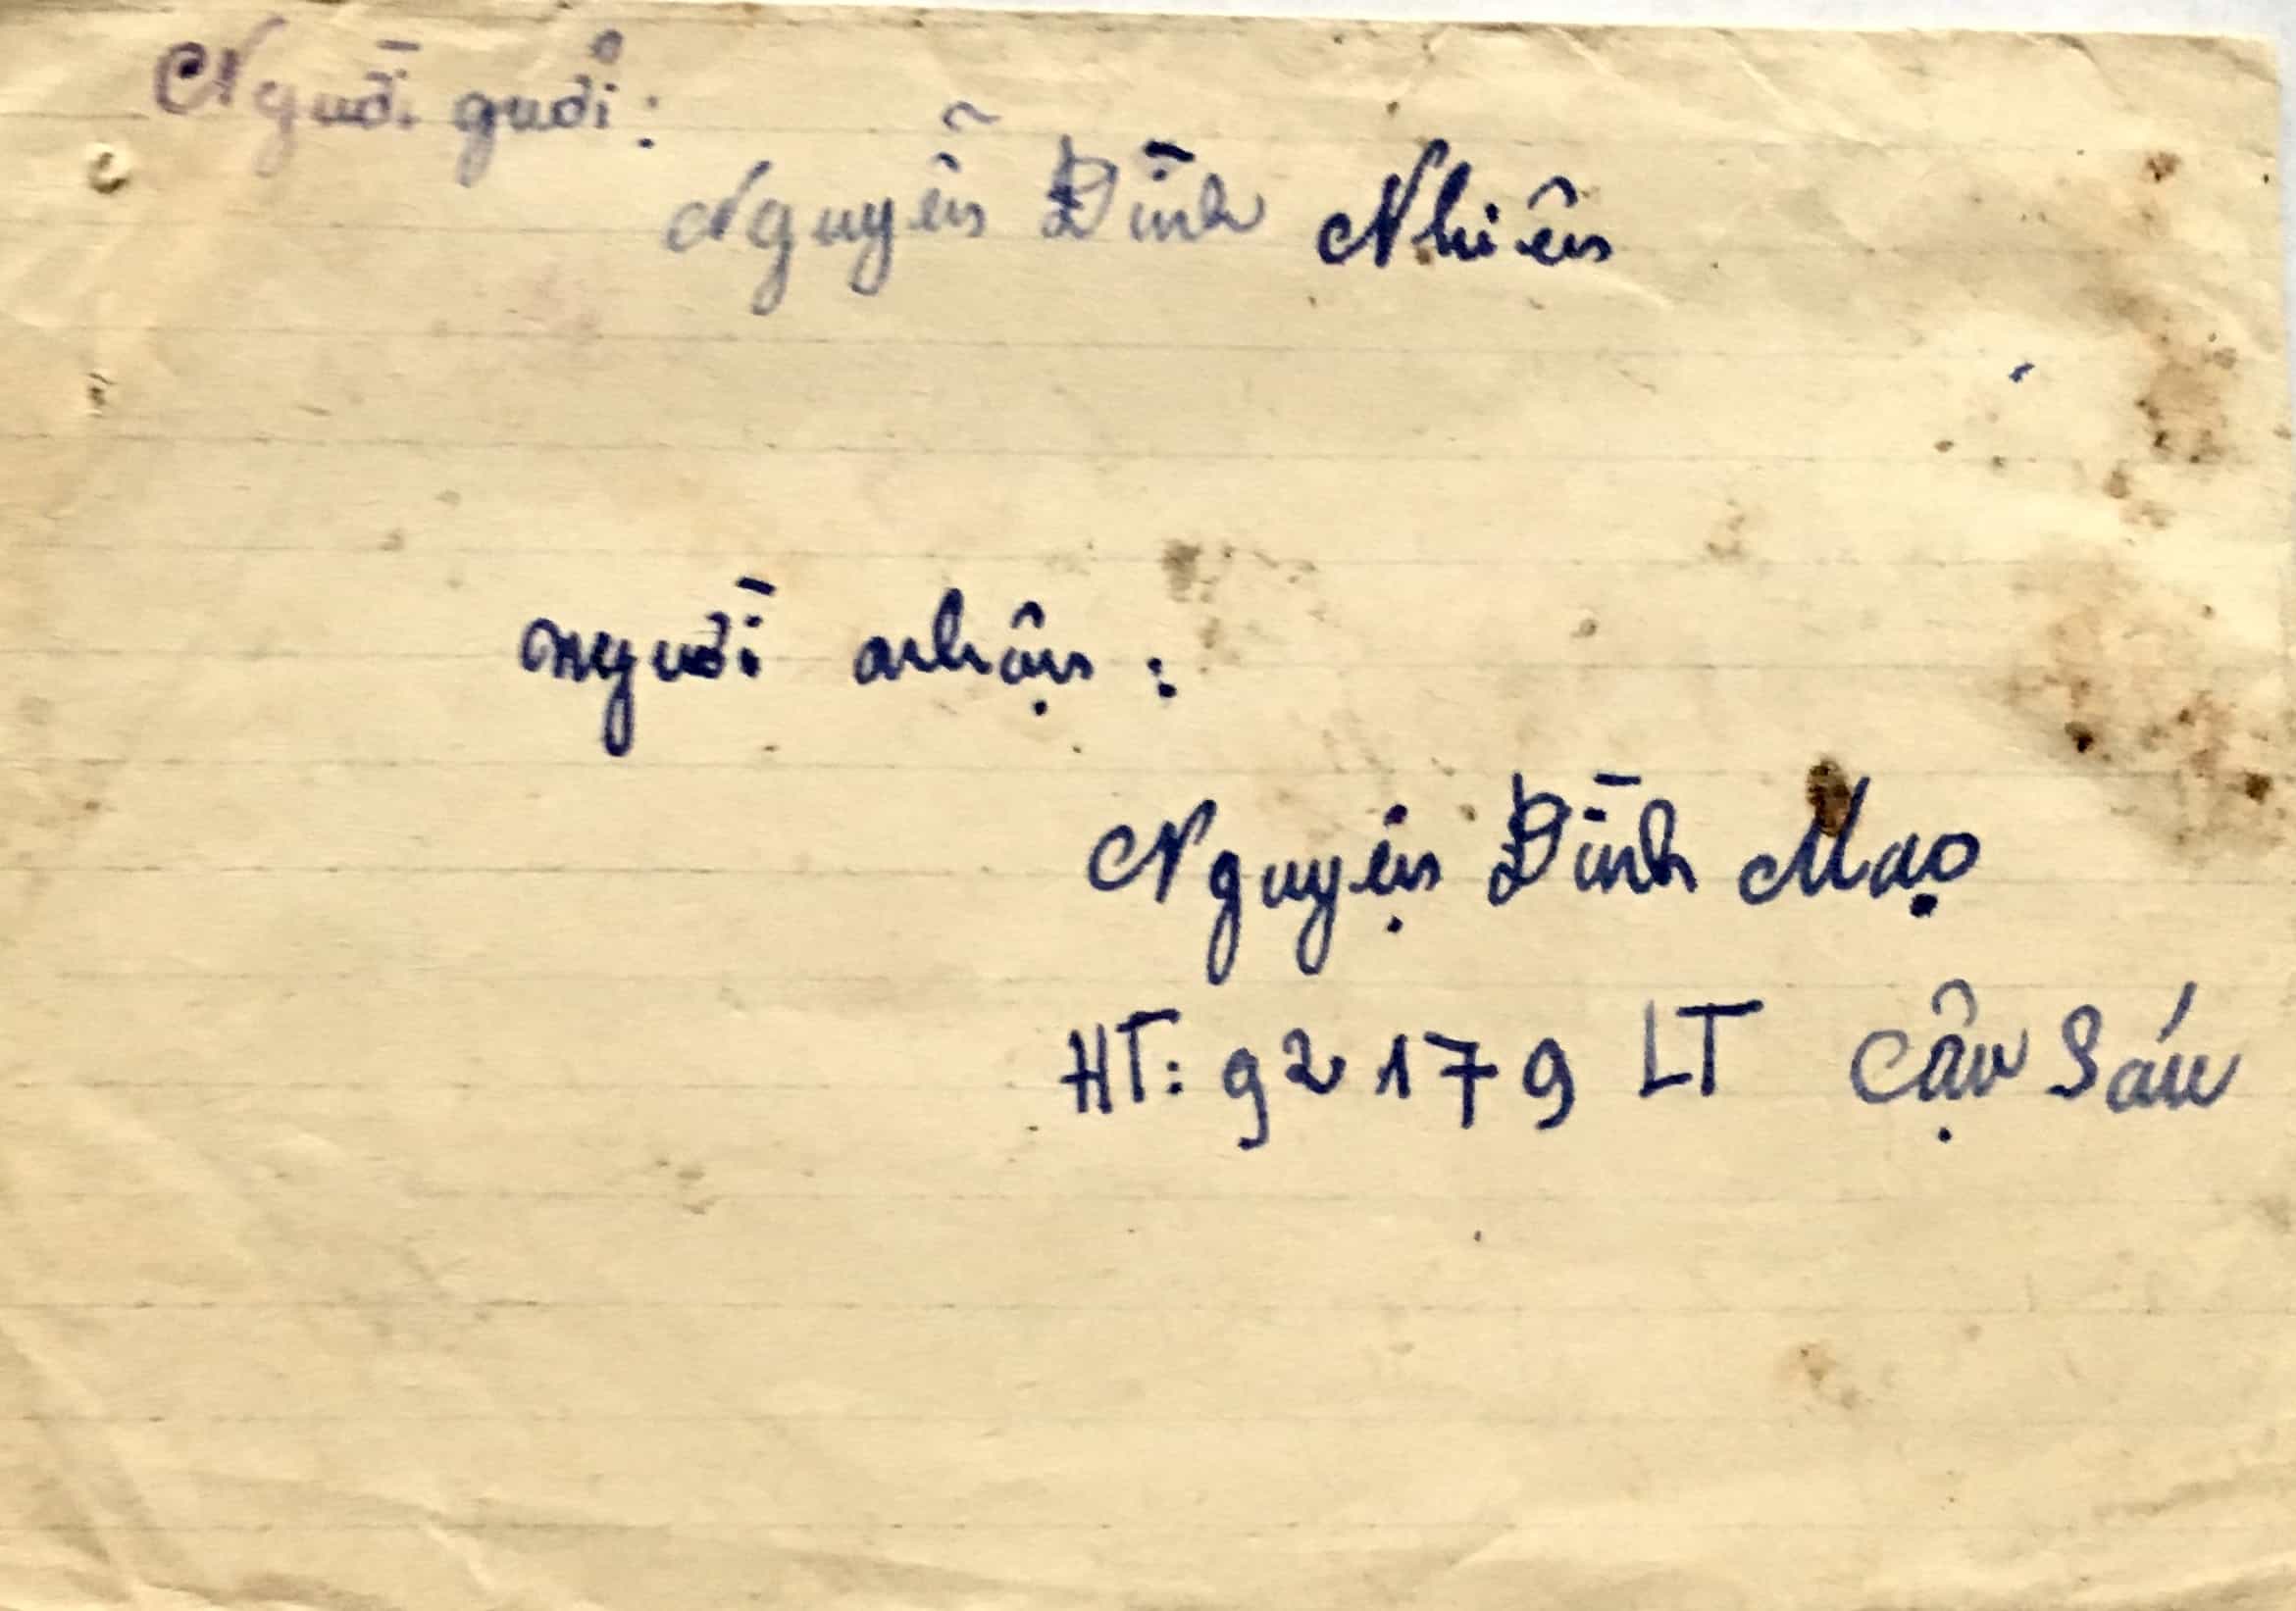 Người gưởi:
Nguyễn Đình Nhiên
người nhận:
Nguyện Đình Mạo
HT: 92179 LT Cậu Sáu